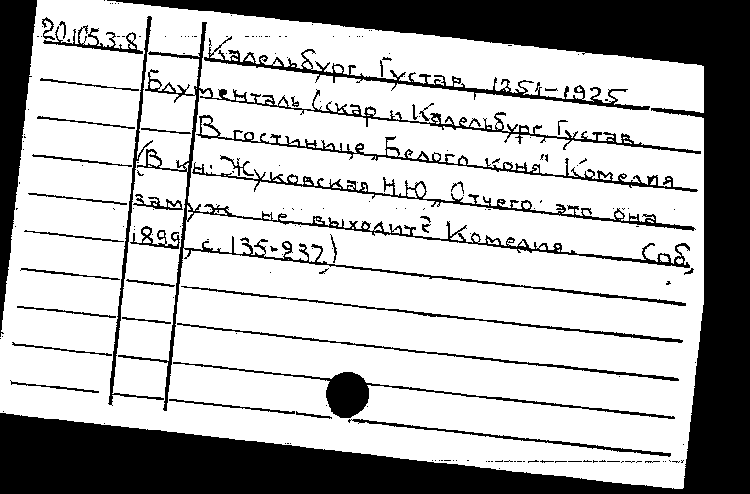 20.105.3.8
Кадельбург, Густав, 1851-1925
Блументаль, Оскар и Кадельбург, Густав.
В гостинице „Белого коня" Комедия
(В кн: Жуковская, Н.Ю. „Отчего это она
замуж не выходит? Комедия. Соб,
1899, с. 135-237)